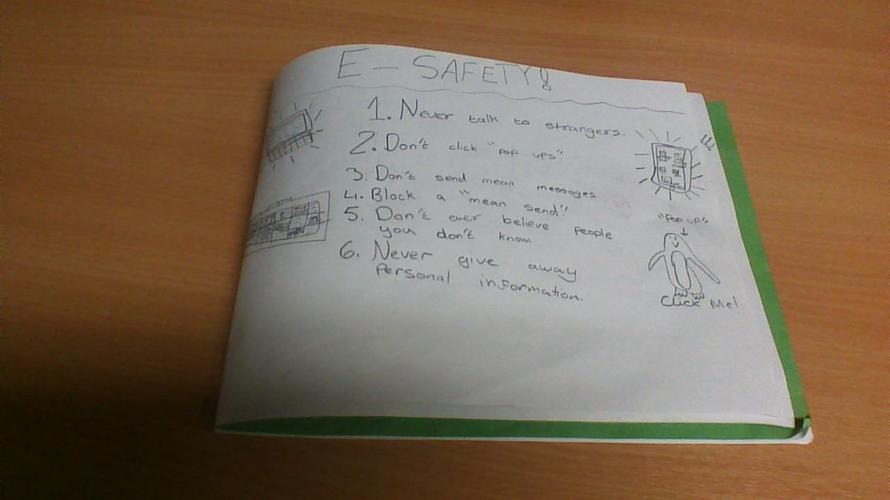 E - SAFETY!
1. Never talk to strangers.
2. Don't click "pop ups"
3. Don't send mean messages
4. Block a "mean send"
5. Don't ever believe people
you don't know.
6. Never give away
Personal information.
"Pop up"
Click Me!